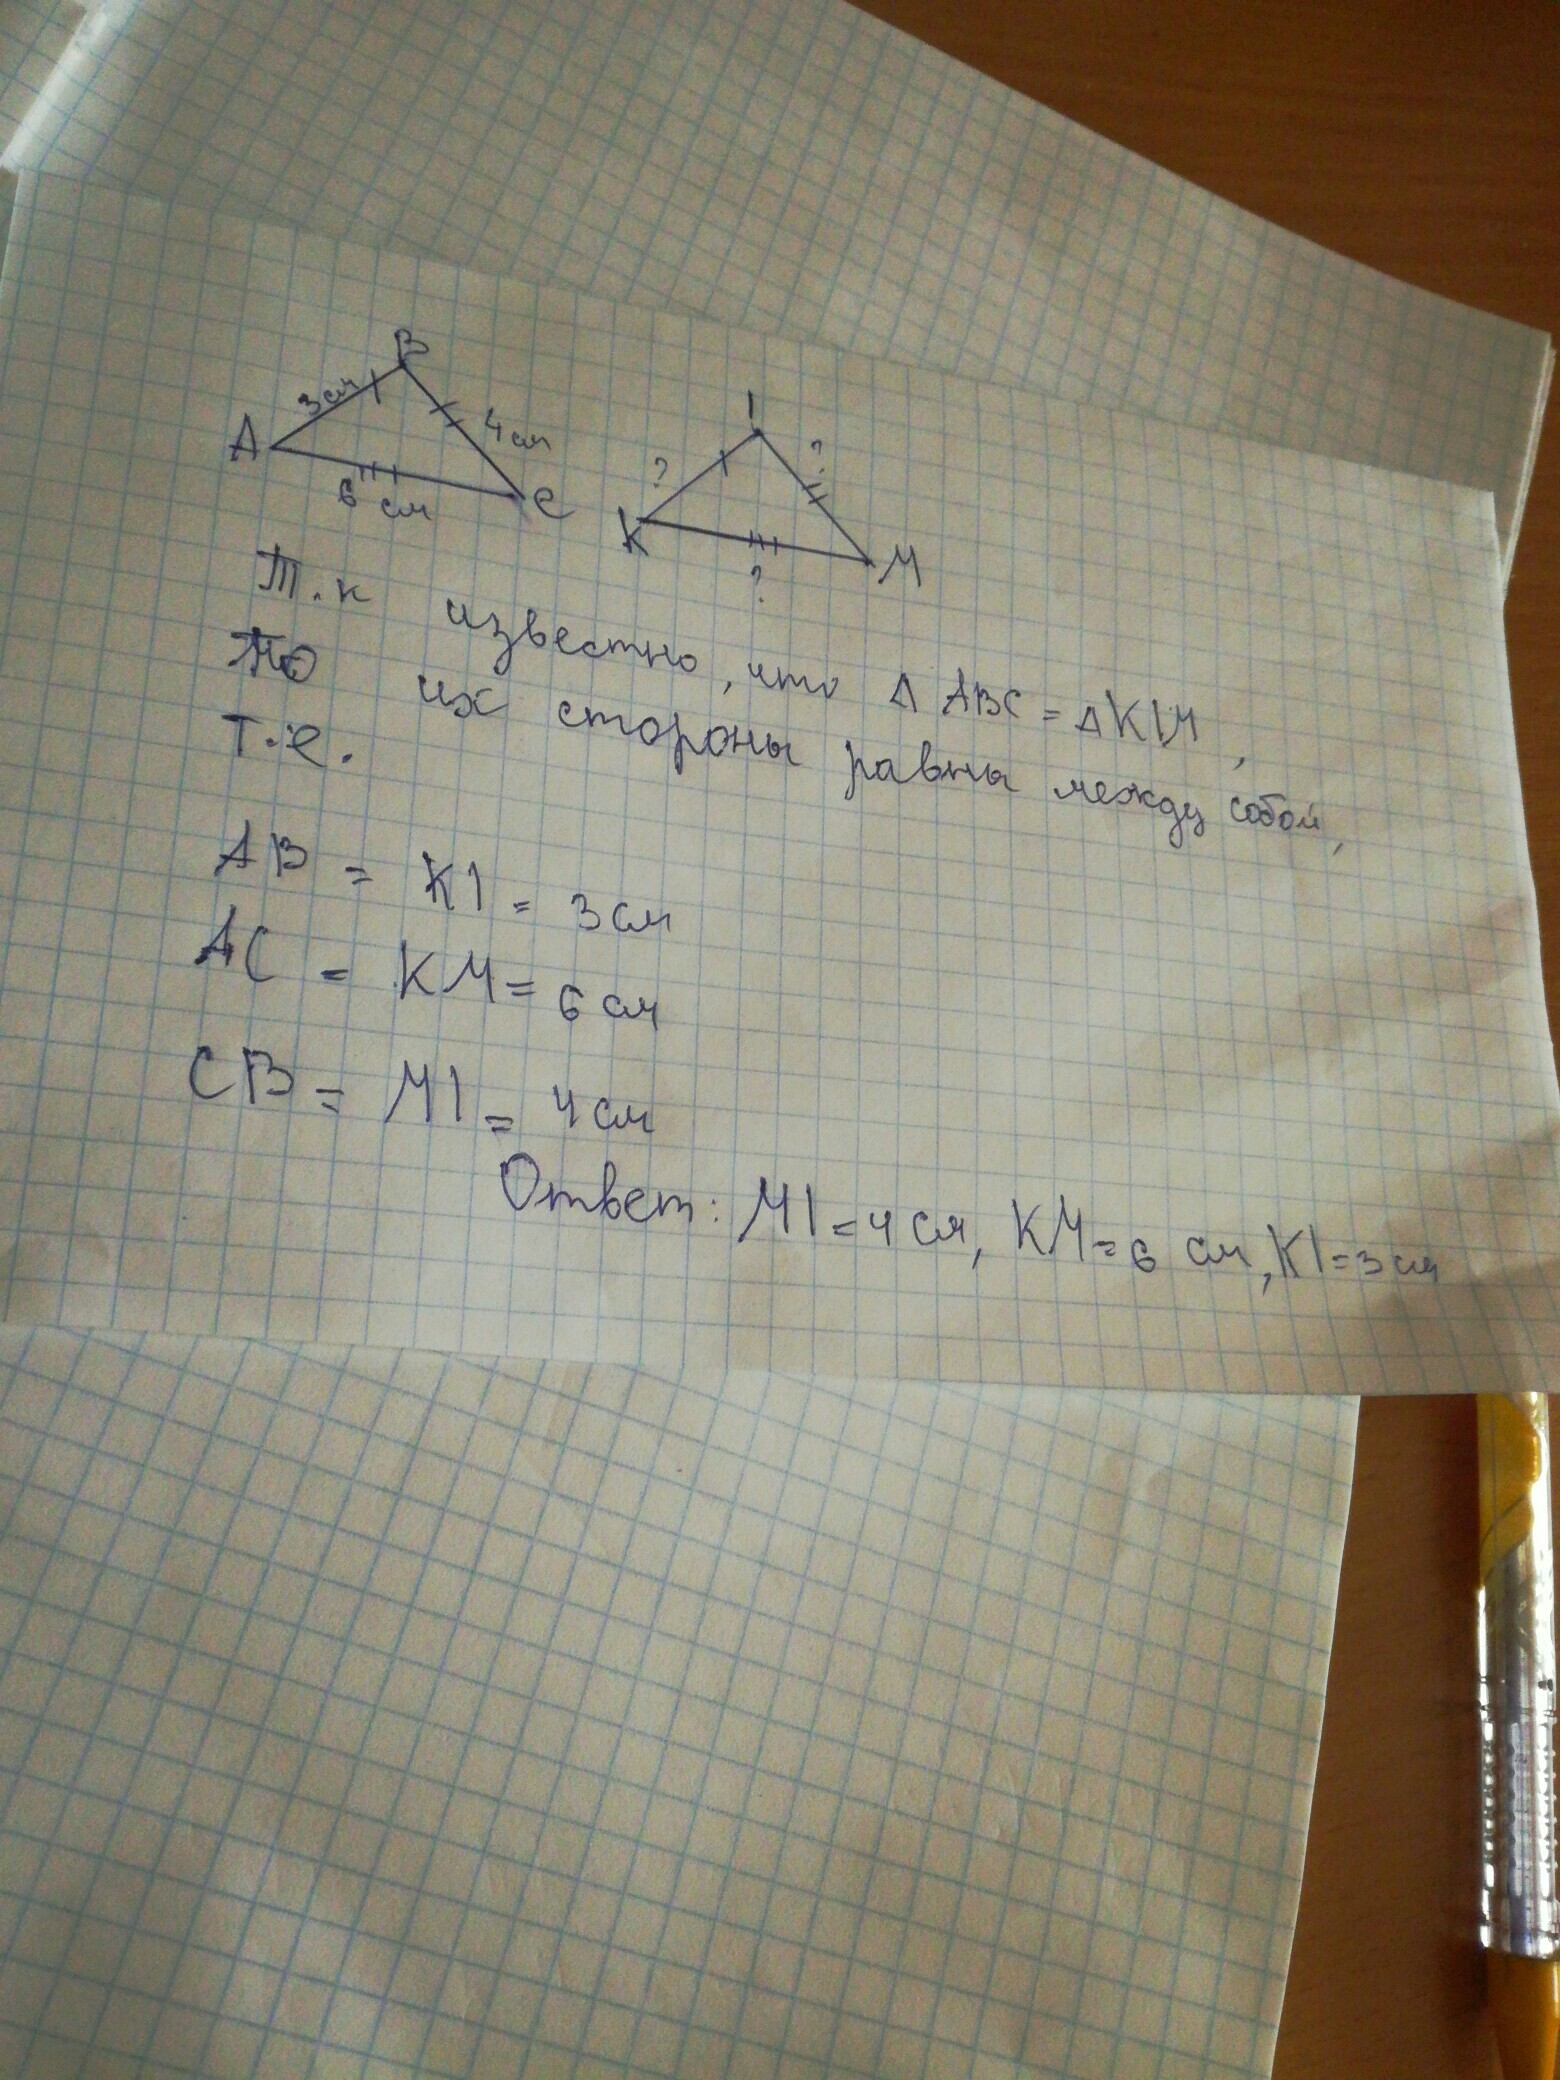 B
3 см
4 см
A
6 см
C
1
?
?
K
M
?
Т.к известно, что Δ ABC = Δ K1M,
то их стороны равны между собой,
т.е.
AB = K1 = 3 см
AC = KM = 6 см
CB = M1 = 4 см
Ответ: M1 = 4 см, KM = 6 см, K1 = 3 см